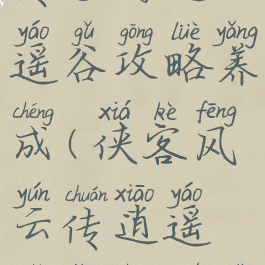 yáo gǔ gōng lüè yǎng
遥谷攻略养
chéng xiá kè fēng
成(侠客风
yún chuán xiāo yáo
云传逍遥